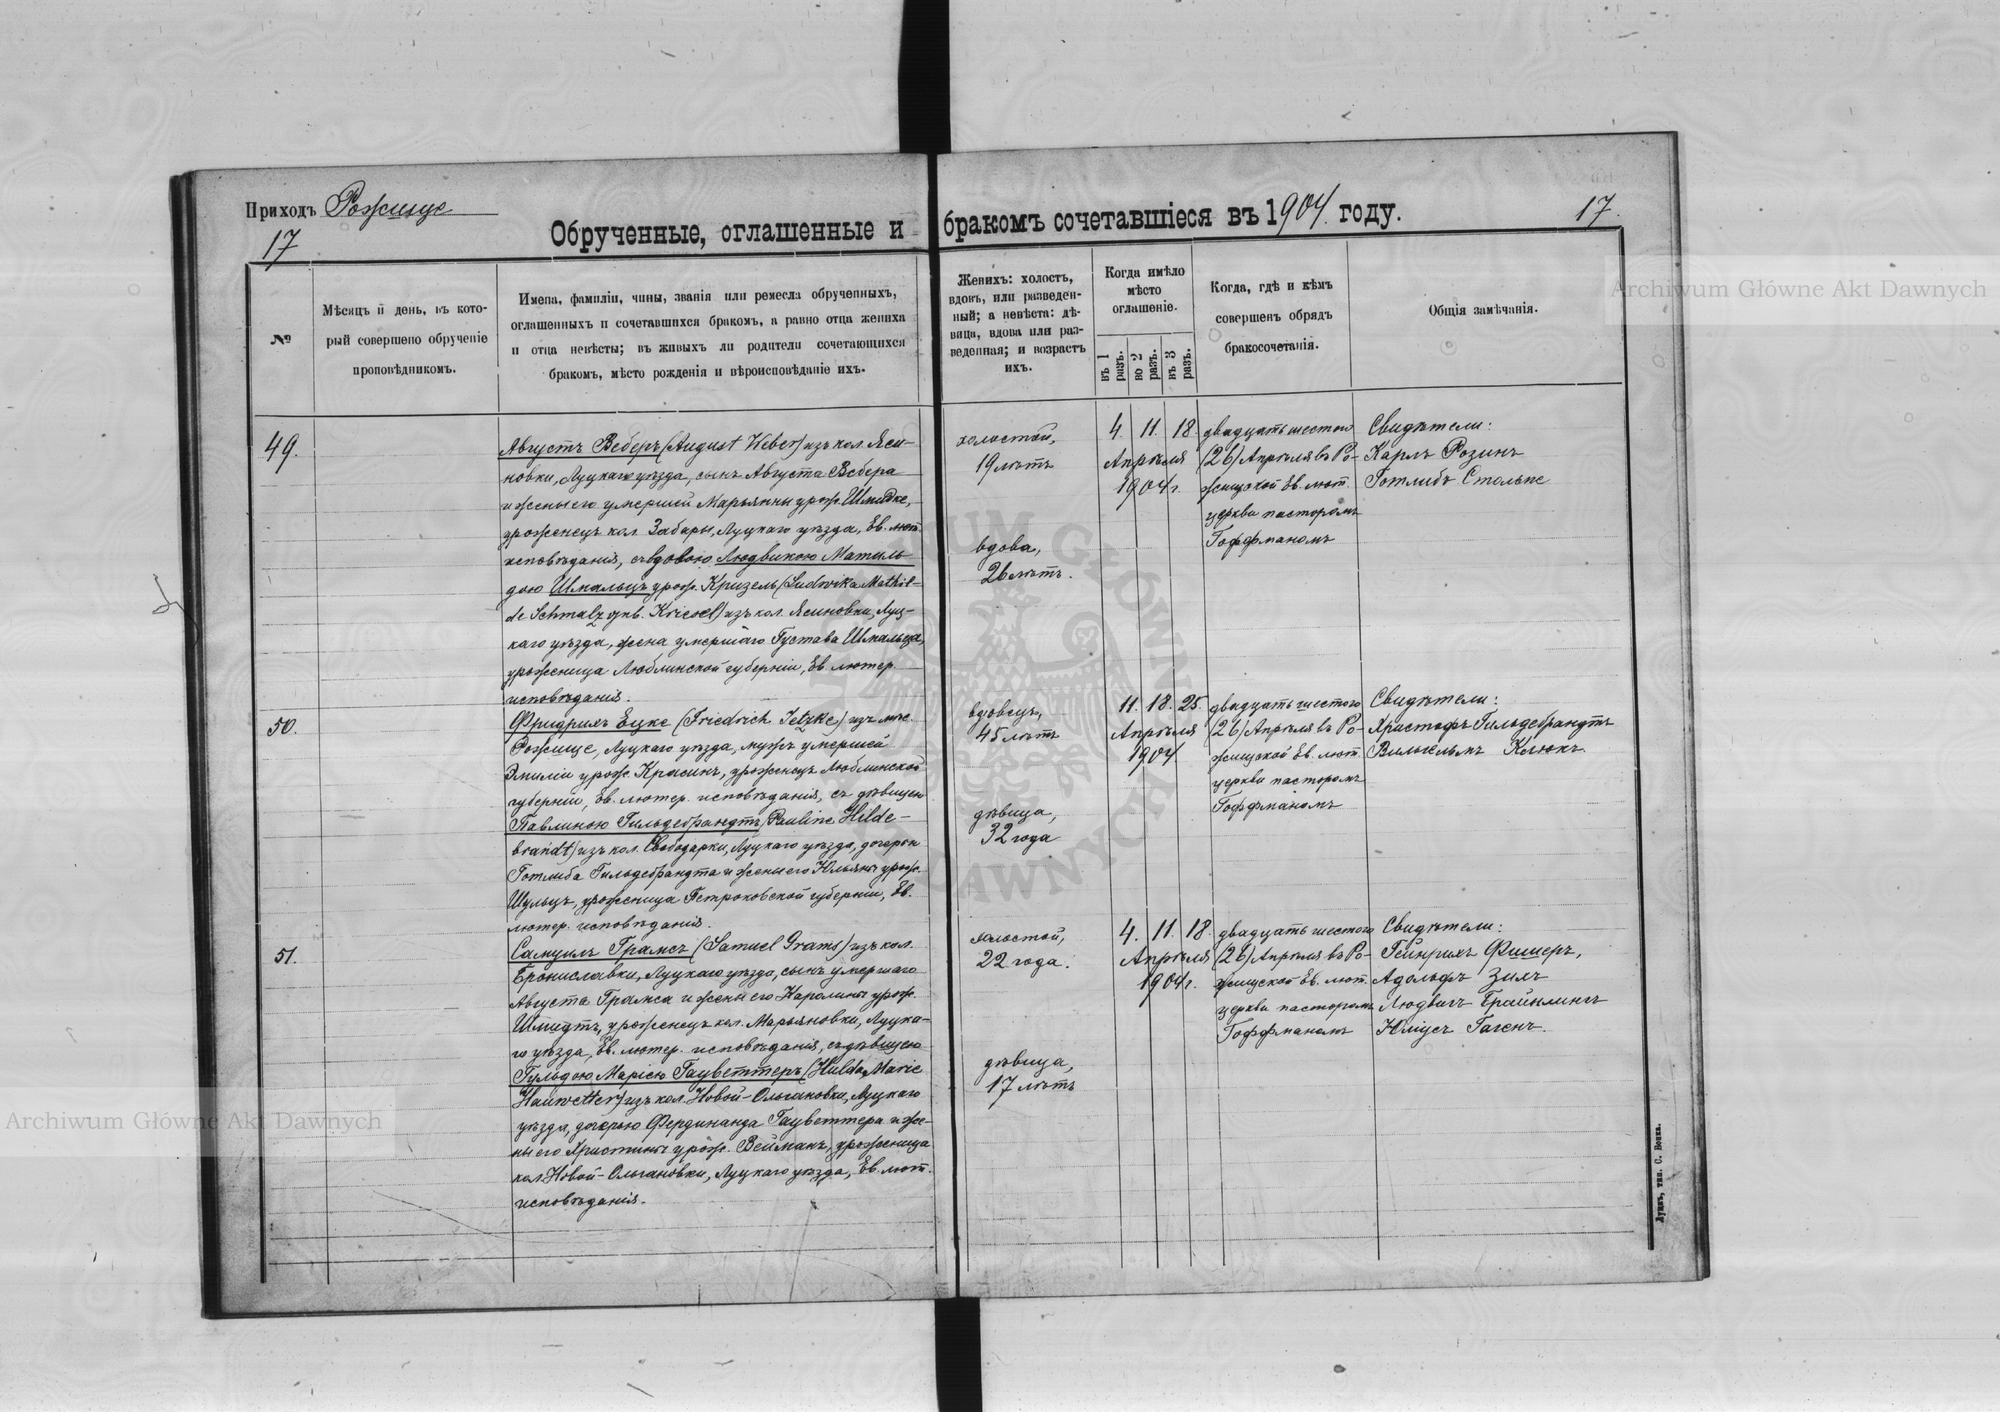 Приходъ Рожище
17
Обрученные, оглашенные и бракомъ сочетавшіеся въ 1904 году.
17.
№
Мѣсяцъ и день, въ кото-
рый совершено обрученіе
проповѣдникомъ.
Имена, фамиліи, чины, званія или ремесла обрученныхъ,
оглашенныхъ и сочетавшихся бракомъ, а равно отца жениха
и отца невѣсты; въ живыхъ ли родители сочетающихся
бракомъ, мѣсто рожденія и вѣроисповѣданіе ихъ.
Женихъ: холостъ,
вдовъ, или разведен-
ный; а невѣста: дѣ-
вица, вдова или раз-
веденная; и возрастъ
ихъ.
Когда имѣло
мѣсто
оглашеніе.
въ 1 разъ.
во 2 разъ.
въ 3 разъ.
Когда, гдѣ и кѣмъ
совершенъ обрядъ
бракосочетанія.
Общія замѣчанія.
49.
Августъ Веберъ (August Weber) изъ кол. Яси-
новки, Луцкаго уѣзда, сынъ Августа Вебера
и жены его умершей Марьянны урож. Шмидке,
уроженецъ кол. Забары, Луцкаго уѣзда, Ев. лют.
исповѣданія, съ вдовою Людвикою Матиль-
дою Шмальцъ урож. Кризель (Ludwika Mathil-
de Schmalz gnb. Kriesel) изъ кол. Ясиновки, Луц-
каго уѣзда, жена умершаго Густава Шмальца,
уроженица Люблинской губерніи, Ев. лютер.
исповѣданія.
холостой,
19 лѣтъ
вдова,
26 лѣтъ.
4. 11. 18.
Апрѣля
1904 г.
двадцать шестого
(26) Апрѣля въ Ро-
жищской Ев. лют.
церкви пасторомъ
Гоффманомъ
Свидѣтели:
Карлъ Розинъ
Готлибъ Стольпе
50.
Фридрихъ Ецке (Friedrich Jetzke) изъ мѣс.
Рожище, Луцкаго уѣзда, мужъ умершей
Эмиліи урож. Красинъ, уроженецъ Люблинской
губерніи, Ев. лютер. исповѣданія, съ дѣвицею
Павлиною Гильдебрандтъ (Pauline Hilde-
brandt) изъ кол. Свободарки, Луцкаго уѣзда, дочерью
Готлиба Гильдебрандта и жены его Юльяны урож.
Шульцъ, уроженица Петроковской губерніи, Ев.
лютер. исповѣданія.
вдовецъ,
45 лѣтъ
дѣвица,
32 года
11. 18. 25.
Апрѣля
1904
двадцать шестого
(26) Апрѣля въ Ро-
жищской Ев. лют.
церкви пасторомъ
Гоффманомъ
Свидѣтели:
Христофъ Гильдебрандтъ
Вильгельмъ Клюкъ.
51.
Самуилъ Грамсъ (Samuel Grams) изъ кол.
Брониславки, Луцкаго уѣзда, сынъ умершаго
Августа Грамса и жены его Каролины урож.
Шмидтъ, уроженецъ кол. Марьяновки, Луцка-
го уѣзда, Ев. лютер. исповѣданія, съ дѣвицею
Гульдою Маріею Гауветтеръ (Hulda Marie
Hauwetter) изъ кол. Новой-Ольгановки, Луцкаго
уѣзда, дочерью Фердинанда Гауветтера и же-
ны его Христины урож. Вейманъ, уроженица
кол. Новой-Ольгановки, Луцкаго уѣзда, Ев. лют.
исповѣданія.
холостой,
22 года.
дѣвица,
17 лѣтъ
4. 11. 18.
Апрѣля
1904 г.
двадцать шестого
(26) Апрѣля въ Ро-
жищской Ев. лют.
церкви пасторомъ
Гоффманомъ
Свидѣтели:
Гейнрихъ Фишеръ,
Адольфъ Зилъ
Людвигъ Брайнлингъ
Юліусъ Гагенъ.
Луцкъ, тип. С. Бонка.
Archiwum Główne Akt Dawnych
Archiwum Główne Akt Dawnych